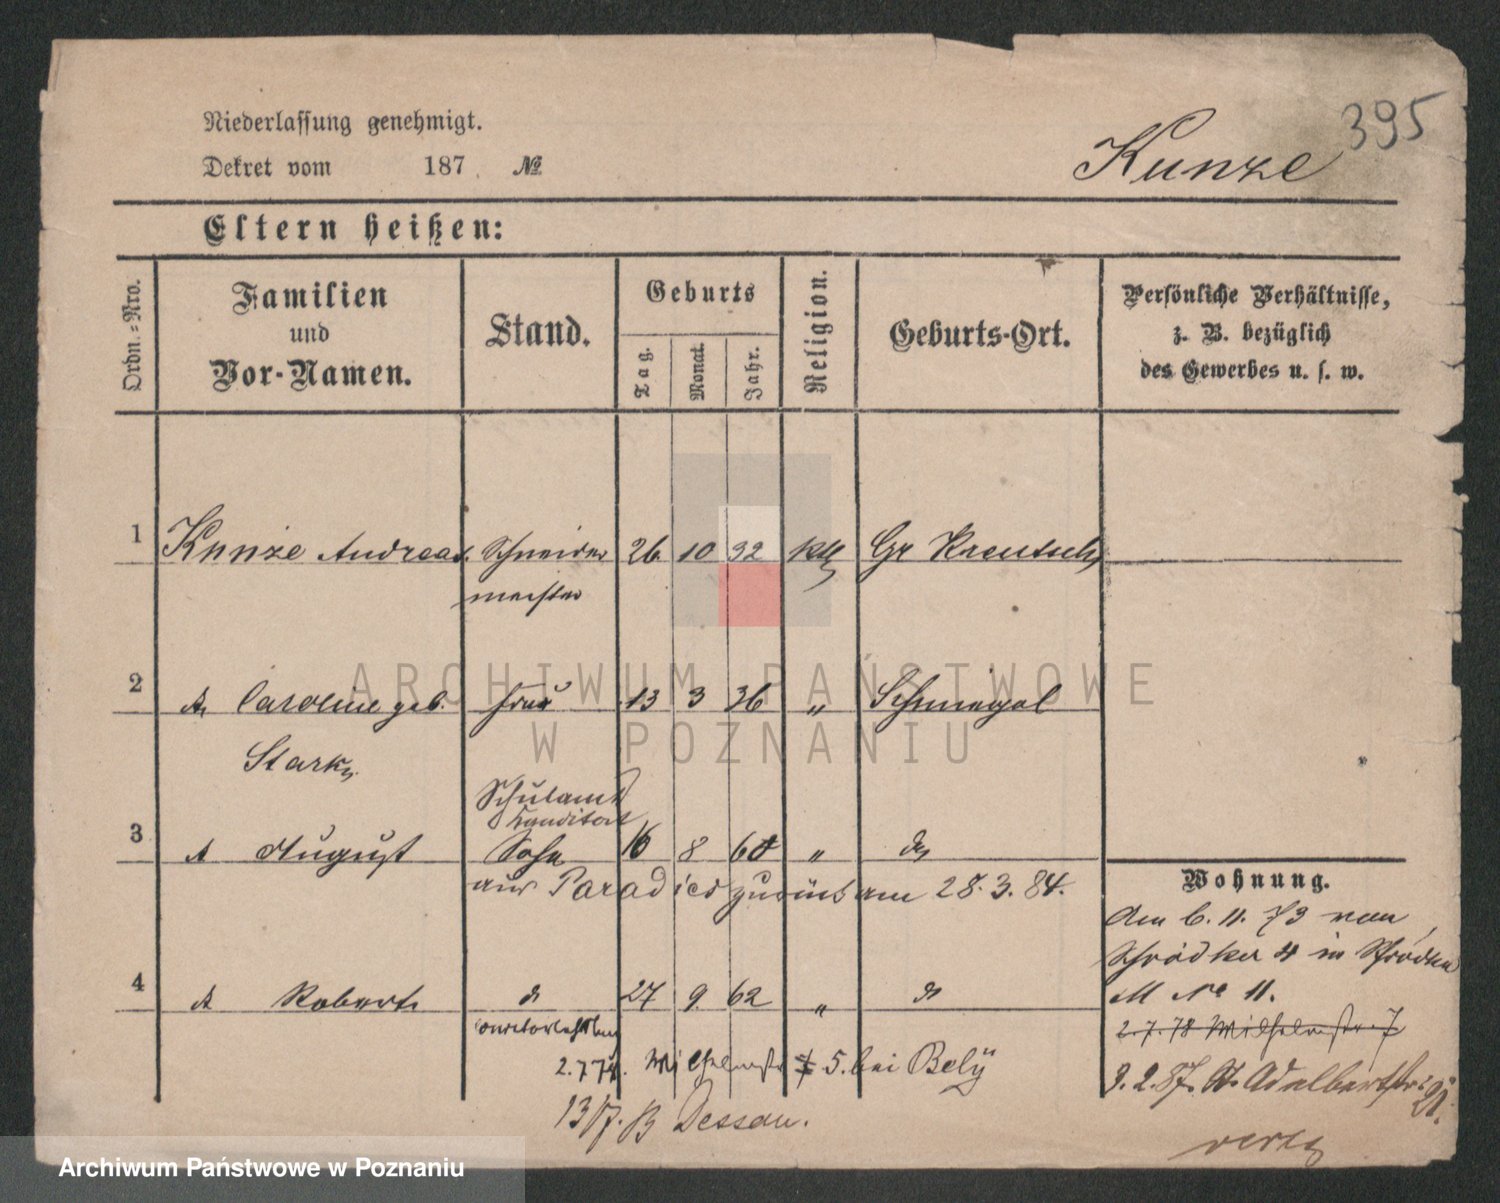 395
Niederlassung genehmigt.
Kunze
Dekret vom 187 . №
Eltern heißen:
Ordn.-Nro. Familien und Vor-Namen. Stand. Geburts Tag. Monat. Jahr. Religion. Geburts-Ort. Persönliche Verhältnisse, z. B. bezüglich des Gewerbes u. s. w.
1 Kunze Andreas Schneider 26 10 32 kth Gr Kreutsch
meister
2 Caroline geb. Frau 13 3 36 „ Schmiegel
Stark
Schulamts
Kandidat
3 August Sohn 16 8 60 „ do
aus Paradies zurück am 28. 3. 84.
Wohnung.
Am 6. 11. 73 von
Schrodka 4 in Schrodka
M No 11.
4 Robert do 27 9 62 „ do
2. 7. 78 Wilhelmstr 7
2. 7 78. Wilhelmstr 5. bei Bely
3. 2. 87. St. Adalbertstr 21.
13/7. Dessau.
ARCHIWUM PAŃSTWOWE
W POZNANIU
Archiwum Państwowe w Poznaniu